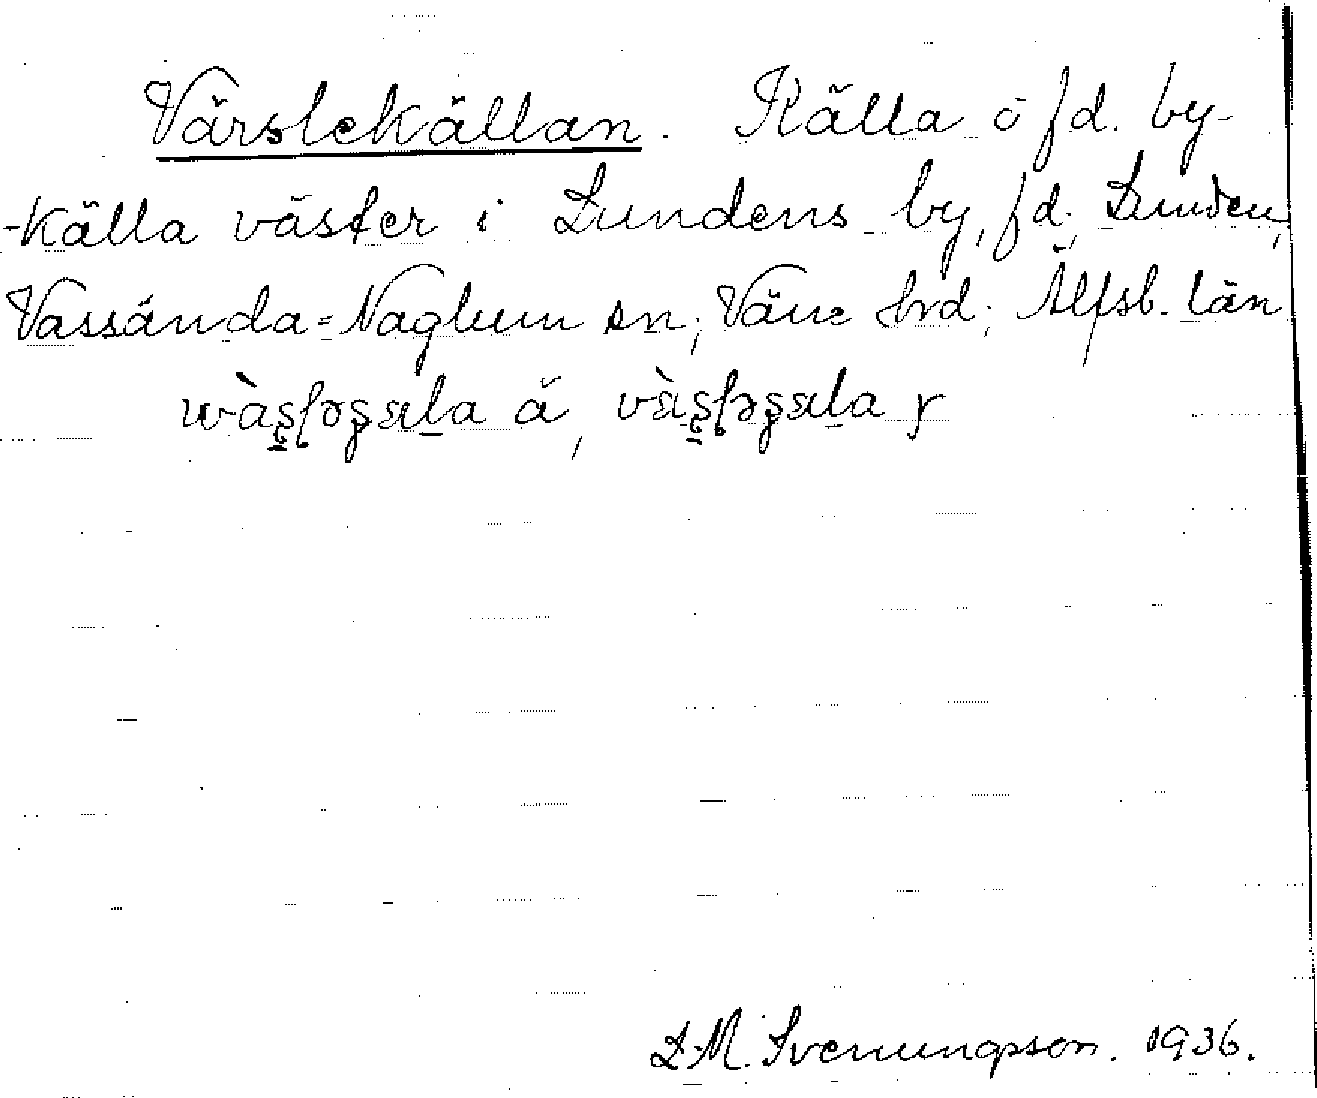 Värslekällan. Källa o fd. by-
-källa väster i Lundens by, fd. Lunden,
Vassända=Naglum sn, Väne hrd, Älfsb. län.
L.M. Svenungsson. 1936.